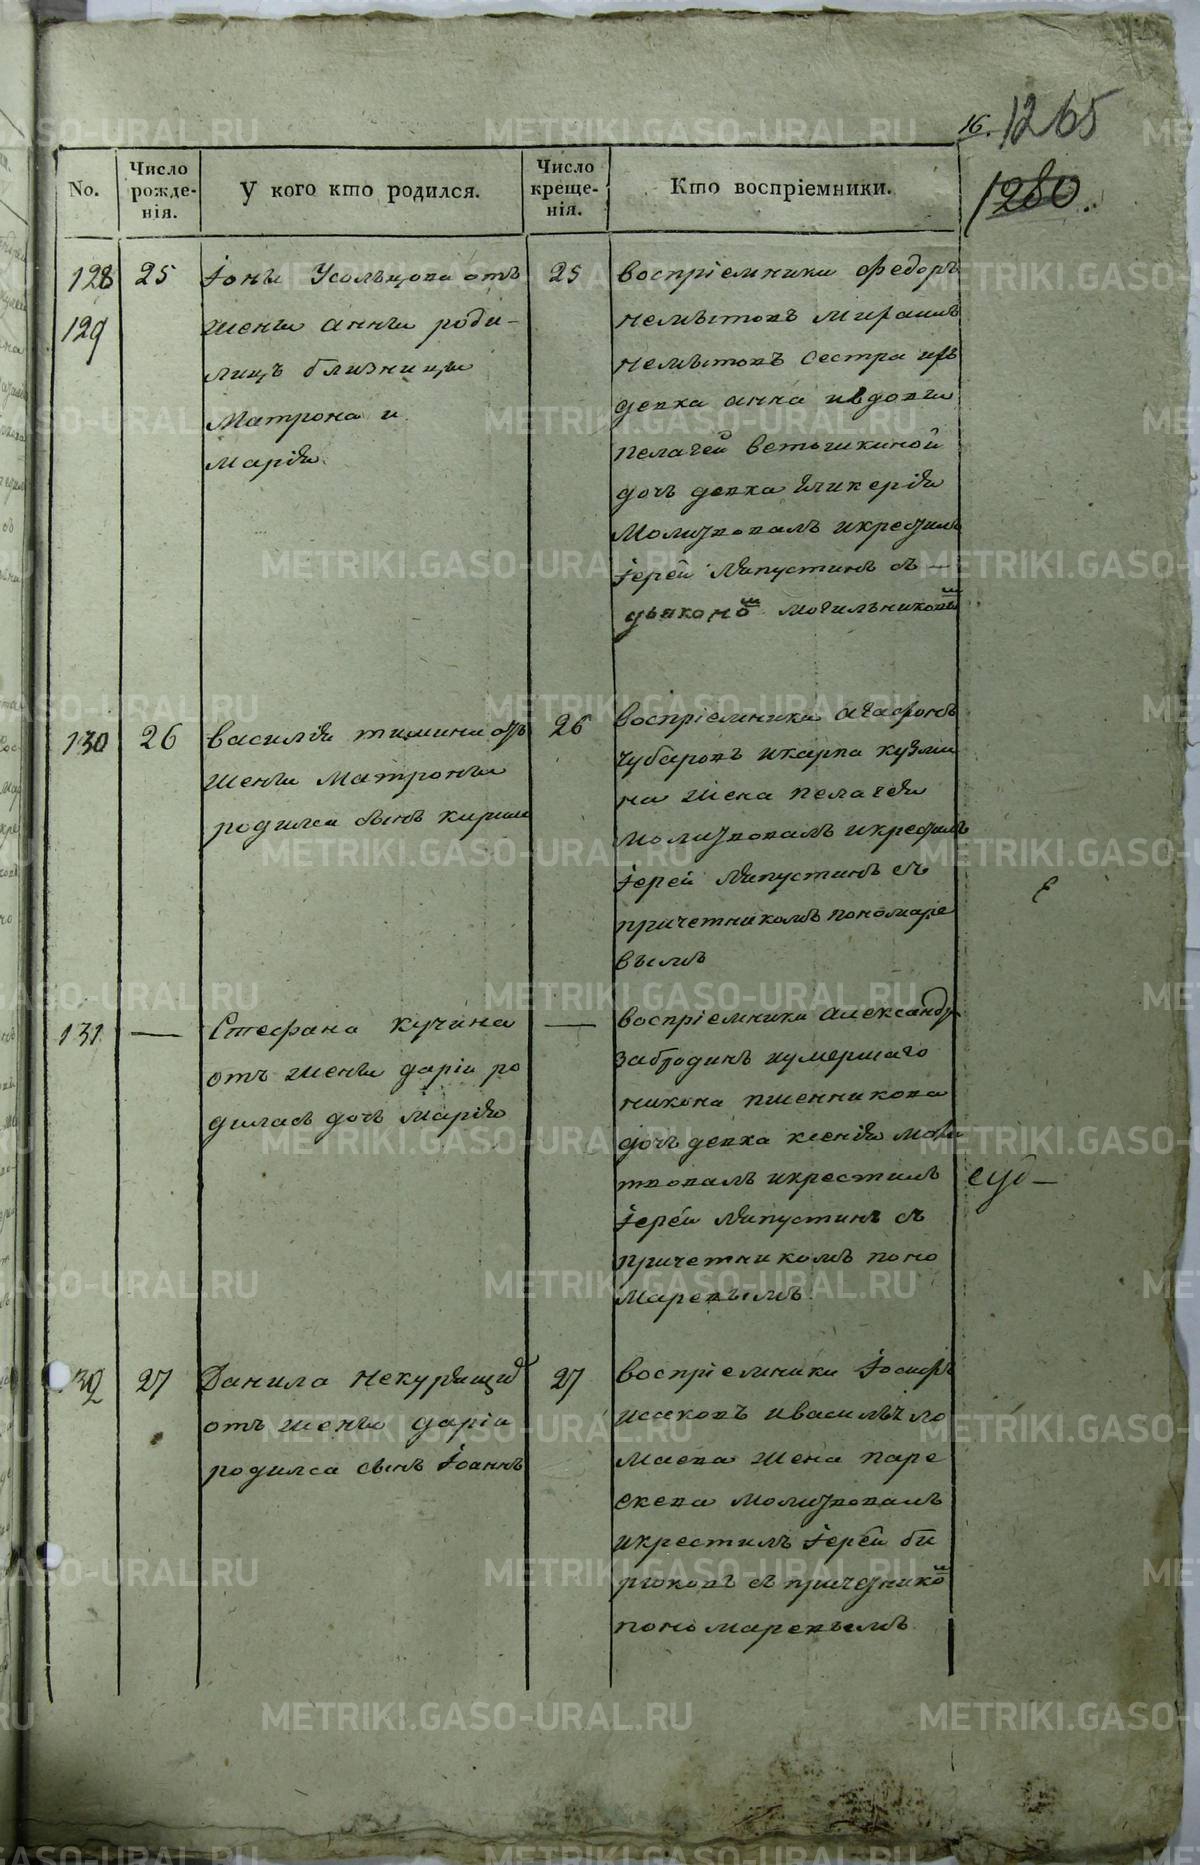 16. 1265
1280
No.
Число рожде-нія.
У кого кто родился.
Число креще-нія.
Кто воспріемники.
128
129
25
Іоны Усольцова отъ
жены анны роди-
лись близницы
Матрона и
Марія
25
воспріемники Федоръ
сестра
девка анна ивдовы
пелагеи ветошкиной
дочь девка Гликерія
Молитвовалъ икрестилъ
Іерей Ляпустинъ съ —
дьякономъ могильниковымъ
130
26
василія тимина отъ
жены Матроны
родился сынъ
26
воспріемники агафонъ
чубаровъ икарпа кузми
на жена пелагея
молитвовалъ икрестилъ
Іерей Ляпустинъ съ
причетникомъ пономаре
вымъ
131
—
Стефана кучина
отъ жены даріи ро
дилась дочь Марія
—
воспріемники Александръ
Забродинъ иумершаго
никона пшенникова
дочь девка ксенія моли
твовалъ икрестилъ
Іерей Ляпустинъ съ
причетникомъ поно
маревымъ
132
27
Данила некурящиѵ
отъ жены даріи
родился сынъ Іоаннъ
27
воспріемники Іосифъ
исаковъ ивасилья ло
маева жена паре
скева молитвовалъ
икрестилъ Іерей би
рюковъ съ причетникомъ
пономаревымъ
METRIKI.GASO-URAL.RU